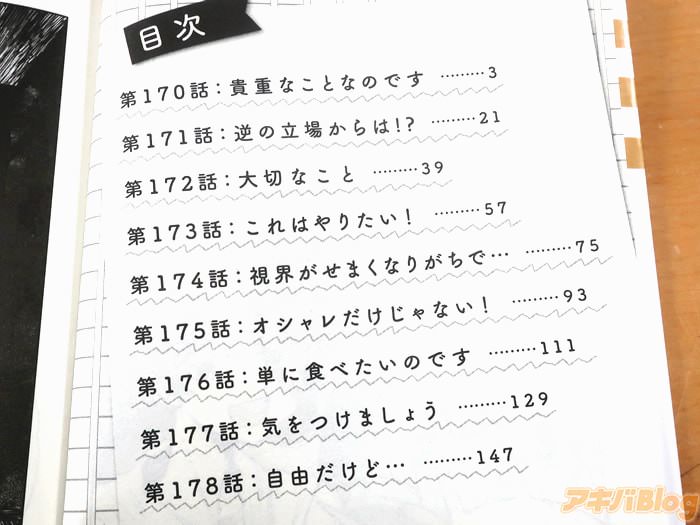 目次
第170話：貴重なことなのです ………3
第171話：逆の立場からは!? ………21
第172話：大切なこと ………39
第173話：これはやりたい！ ………57
第174話：視界がせまくなりがちで… ………75
第175話：オシャレだけじゃない！ ………93
第176話：単に食べたいのです ………111
第177話：気をつけましょう ………129
第178話：自由だけど… ………147
アキバBlog